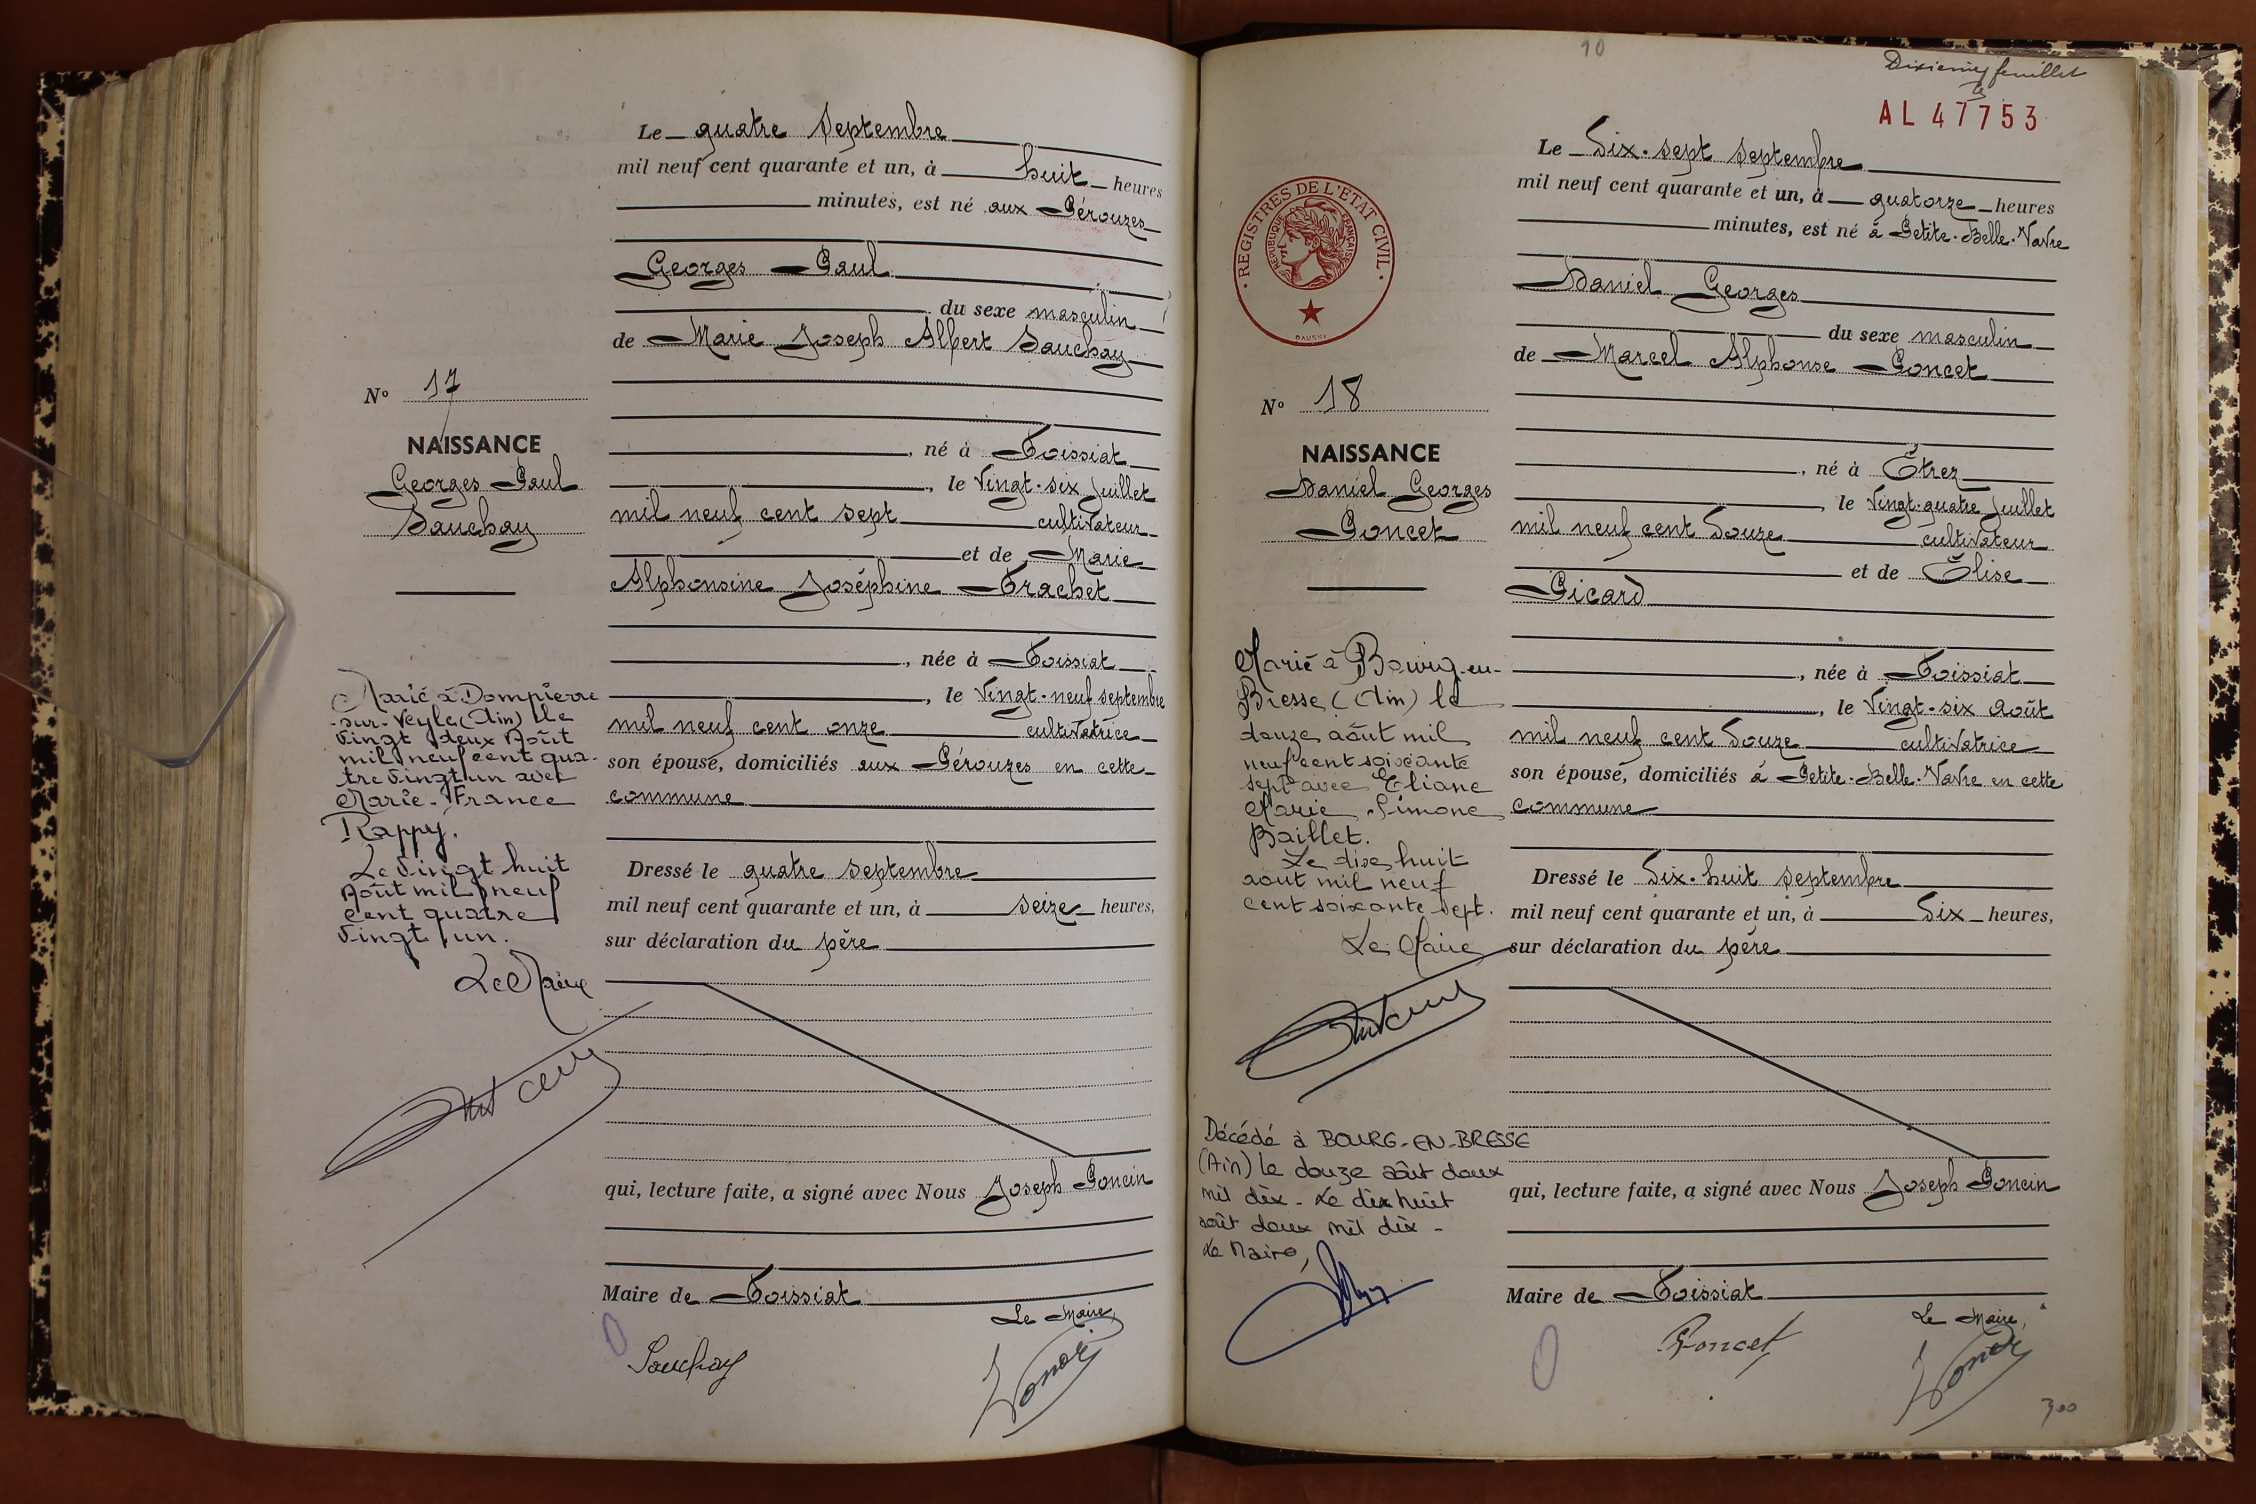 Le quatre septembre
mil neuf cent quarante et un, à huit heures
minutes, est né aux Pérouzes
Georges Paul
du sexe masculin
de Marie Joseph Albert Dauchay
N° 17
NAISSANCE
Georges Paul
Dauchay
, né à Foissiat
, le vingt-six juillet
mil neuf cent sept cultivateur
et de Marie
Alphonsine Joséphine Trachet
, née à Foissiat
, le vingt-neuf septembre
mil neuf cent onze cultivatrice
son épouse, domiciliés aux Pérouzes en cette
commune
Dressé le quatre septembre
mil neuf cent quarante et un, à seize heures,
sur déclaration du père
qui, lecture faite, a signé avec Nous Joseph Poncin
Maire de Foissiat
Le Maire
Marié à Dompierre
-sur-Veyle (Ain) le
vingt deux Août
mil neuf cent qua-
tre vingt un avec
Marie-France
Rappy.
Le vingt huit
Août mil neuf
cent quatre
vingt un.
Le Maire
10
Dixième feuillet
AL 47753
REGISTRES DE L'ETAT CIVIL
REPUBLIQUE FRANÇAISE
Le dix-sept septembre
mil neuf cent quarante et un, à quatorze heures
minutes, est né à Petite-Belle-Vavre
Daniel Georges
du sexe masculin
de Marcel Alphonse Poncet
N° 18
NAISSANCE
Daniel Georges
Poncet
, né à Étrez
, le vingt-quatre juillet
mil neuf cent douze cultivateur
et de Élise
Picard
, née à Foissiat
, le vingt-six août
mil neuf cent douze cultivatrice
son épouse, domiciliés à Petite-Belle-Vavre en cette
commune
Dressé le dix-huit septembre
mil neuf cent quarante et un, à dix heures,
sur déclaration du père
qui, lecture faite, a signé avec Nous Joseph Poncin
Maire de Foissiat
Le Maire,
Poncet
Marié à Bourg-en-
Bresse (Ain) le
douze août mil
neuf cent soixante
sept avec Eliane
Marie Simone
Baillet.
Le dix huit
août mil neuf
cent soixante sept.
Le Maire
Décédé à BOURG-EN-BRESSE
(Ain) le douze août deux
mil dix - Le dix huit
août deux mil dix -
Le Maire,
300